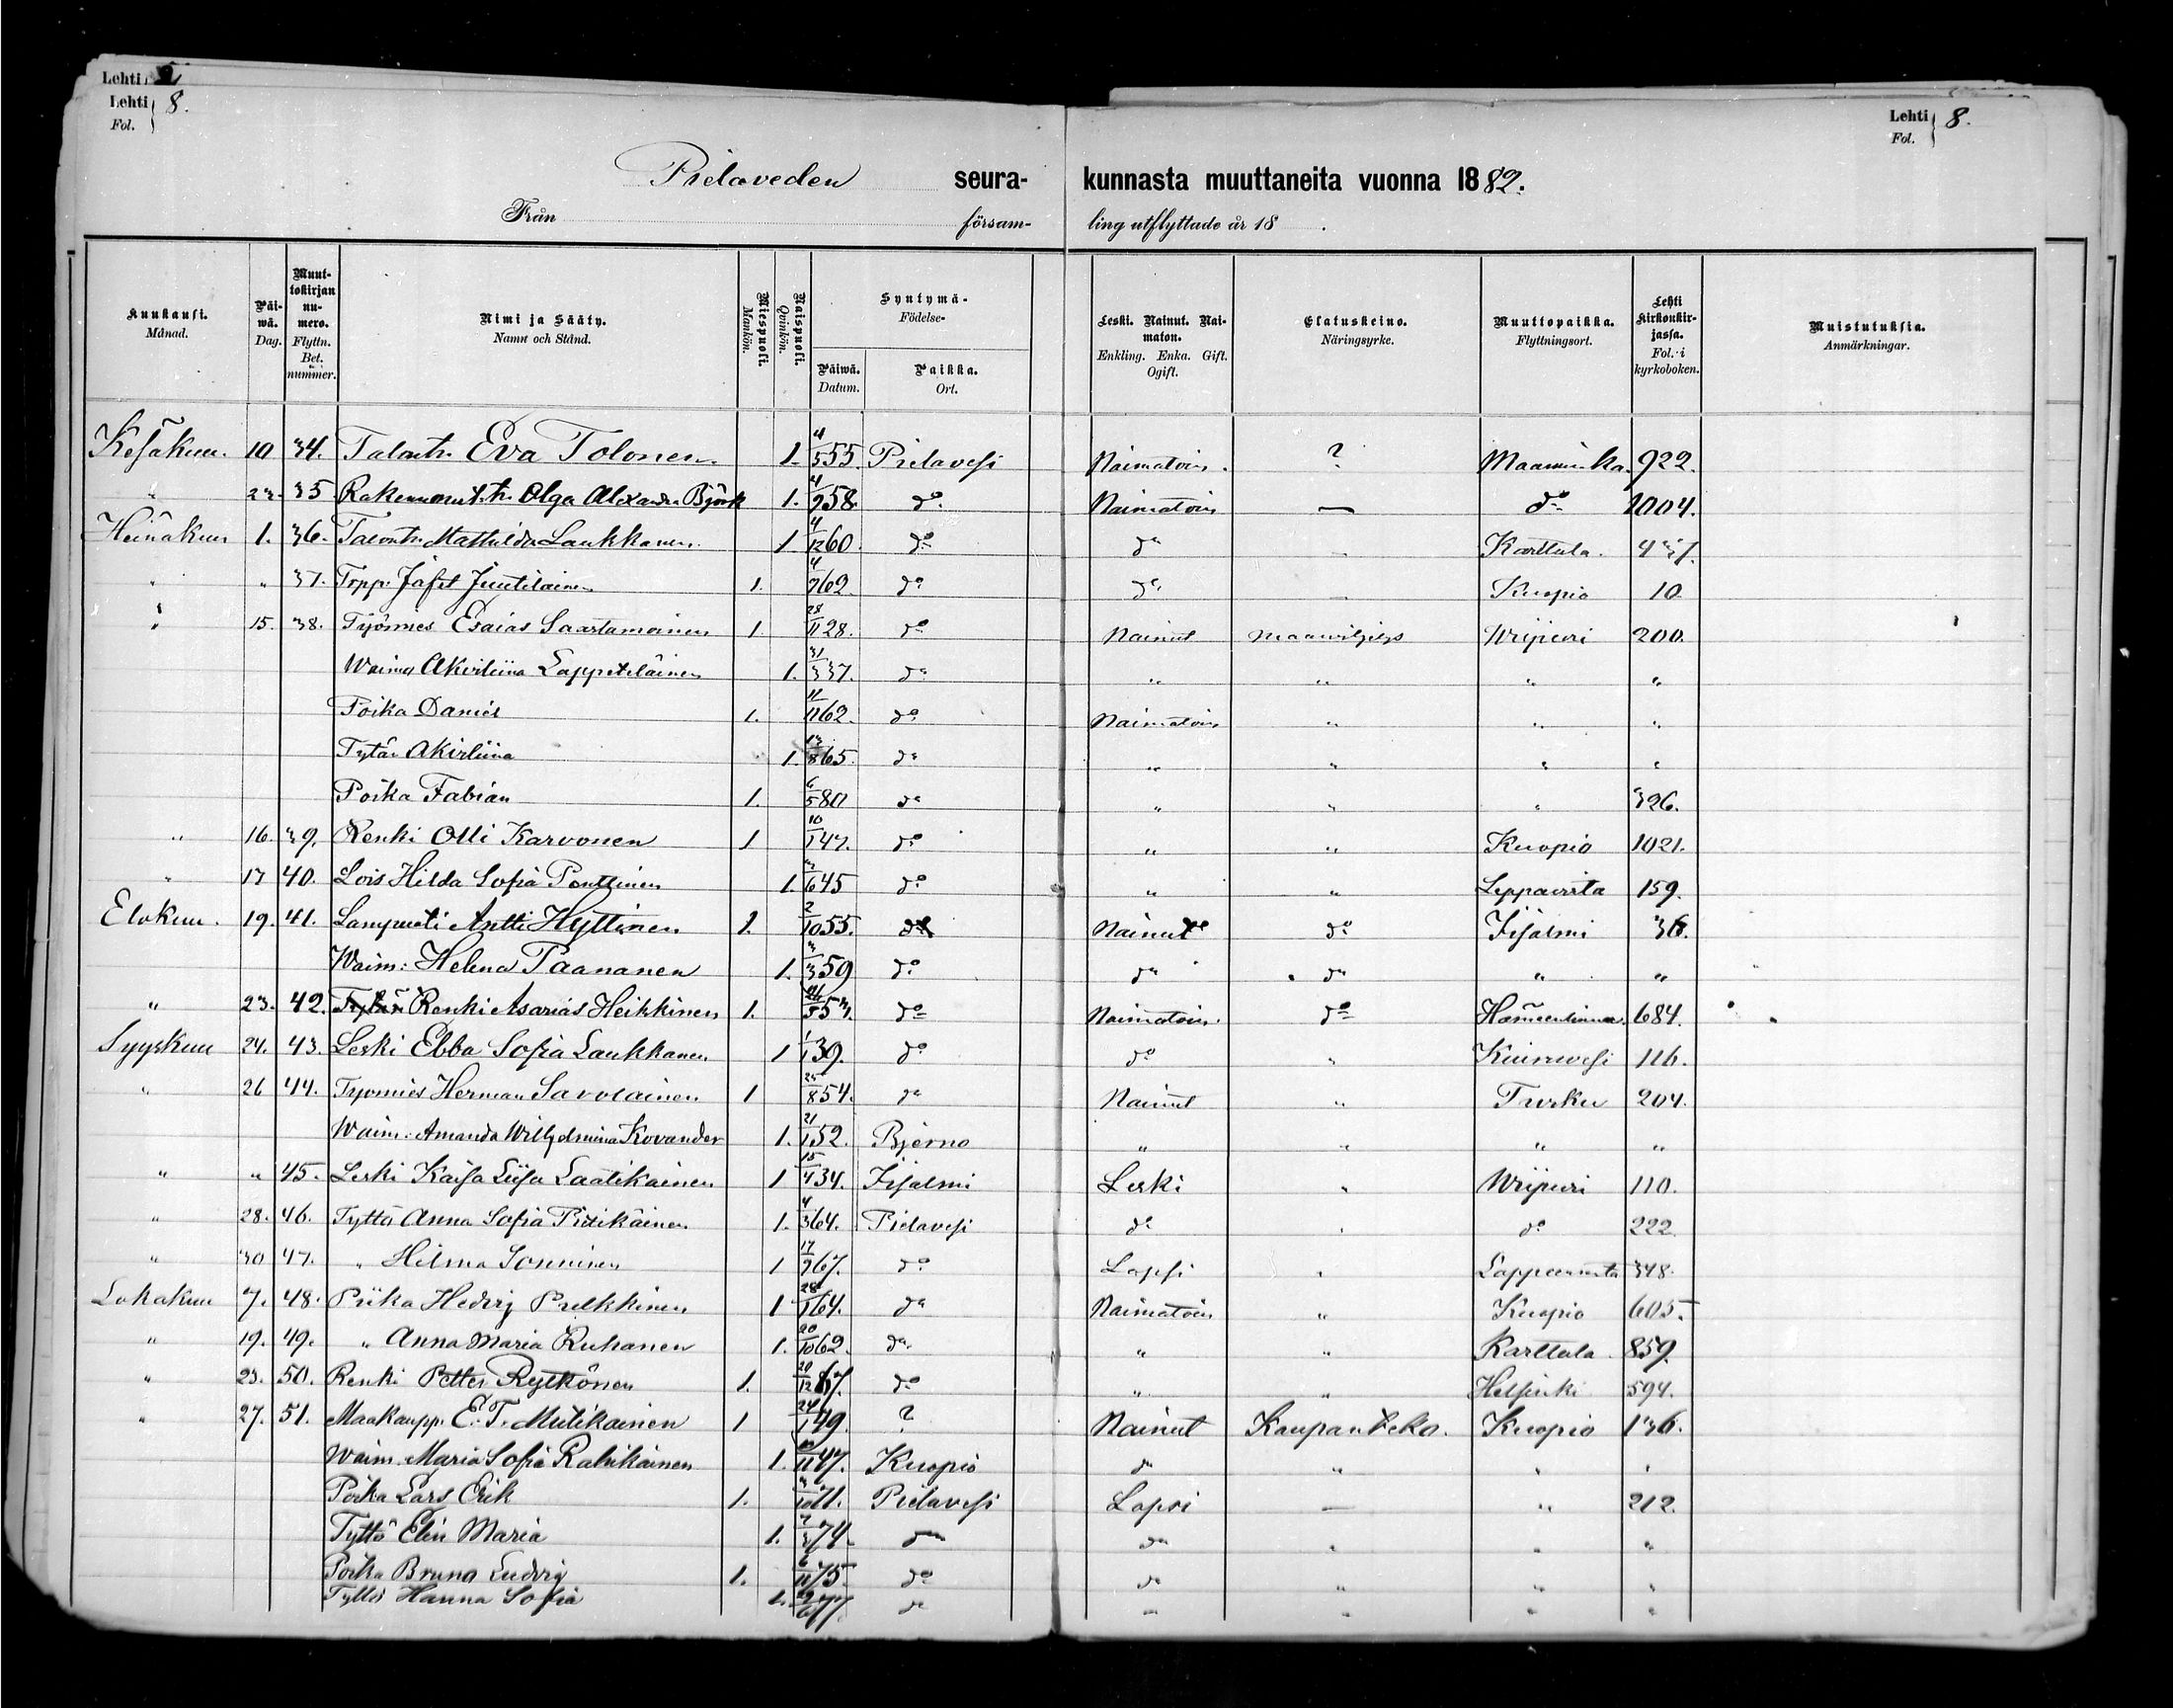 Lehti 2
Lehti 8.
Fol.
Lehti 8.
Fol.
Pielaveden seura- kunnasta muuttaneita vuonna 1882.
Från försam- ling utflyttade år 18 .
Kuukausi. Månad.
Päiwä. Dag.
Muuttokirjan numero. Flyttn. Bet. nummer.
Nimi ja Sääty. Namn och Stånd.
Miespuoli. Mankön.
Naispuoli. Qvinkön.
Syntymä- Födelse-
Päiwä. Datum.
Paikka. Ort.
Leski. Nainut. Naimaton. Enkling. Enka. Gift. Ogift.
Elatuskeino. Näringsyrke.
Muuttopaikka. Flyttningsort.
Lehti kirkonkirjassa. Fol. i kyrkoboken.
Muistutuksia. Anmärkningar.
Kesäkuu. 10 34. Talontr. Eva Tolonen 1. 4/5 55. Pielavesi Naimatoin. ? Maaninka. 922.
" 23. 35. Olga Alexandra Björk 1. 4/9 58. do Naimatoin — do 1004.
Heinäkuu 1. 36. Talontr. Mathilda Laukkanen 1 4/12 60. do do Karttula. 437.
" " 37. Jafet Juutilainen 1. 4/9 62. do do — Kuopio 10
" 15. 38. Työmies Esaias Saastamoinen 1. 28/11 28. do Nainut maanviljelys Wijpuri 200.
Waimo Akviliina Lappeteläinen 1. 31/3 37. do " " " "
Poika Daniel 1. 11/11 62. do Naimatoin " " "
Tytär Akviliina 1. 13/8 65. do " " " "
Poika Fabian 1. 6/5 80 do " " " 326.
" 16. 39. Renki Olli Karvonen 1 10/1 47. do " " Kuopio 1021.
" 17 40. Lois Hilda Sofia Ponttinen 1. 3/6 45 do " " Leppävirta 159.
Elokuu. 19. 41. Lampuoti Antti Hyttinen 1. 2/10 55. do Nainut do Iisalmi 36.
Waim: Helena Paananen 1. 3/3 59 do do do " "
" 23. 42. Renki Asarias Heikkinen 1. 26/5 53. do Naimatoin. do Hämeenlinna. 684.
Syyskuu 24. 43. Leski Ebba Sofia Laukkanen 1 1/1 39. do do " Kiuruvesi 116.
" 26 44. Työmies Herman Savolainen 1 25/8 54. do Nainut " Turku 204.
Waim: Amanda Wilhelmina Kovander 1. 21/1 52. Bjerno " " " "
" " 45. Leski Kaisa Liisa Laatikainen 1 15/4 34. Iisalmi Leski " Wijpuri 110.
" 28. 46. Tyttö Anna Sofia Pitikäinen 1. 4/3 64. Pielavesi do " do 222
" 30 47. " Hilma Sonninen 1 17/9 67. do Lapsi " Lappeenranta 348.
Lokakuu 7. 48. Piika Hedvig Pulkkinen 1 28/1 64. do Naimatoin " Kuopio 605.
" 19. 49. " Anna Maria Ruhanen 1. 20/10 62. do " " Karttula. 859.
" 23. 50. Renki Petter Rytkönen 1. 20/12 67. do " " Helsinki 594.
" 27. 51. Maakaupp. E. T. Miitikainen 1 24/1 49. ? Nainut Kaupanteko. Kuopio 136.
Waim. Maria Sofia Rahikainen 1. 11 47. Kuopio do " " "
Poika Lars Erik 1. 3/10 71. Pielavesi Lapsi — " 212.
Tyttö Elin Maria 1. 7/3 74. do do " " "
Poika Bruno Ludvig 1. 6/11 75. do do " " "
Tyttö Hanna Sofia 1. 29/6 77 do " " " "